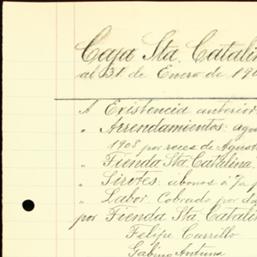 Caja Sta. Catalin
al 31 de Enero de 190
A Existencia anterior
" Arrendamientos: ago
1908 por reces de Agost
" Tienda Sta. Catalina
" Sirotes: abonos á 7a
" Labor. Cobrado por
por Tienda Sta. Catal
Felipe Carrillo
Gabino Antuna